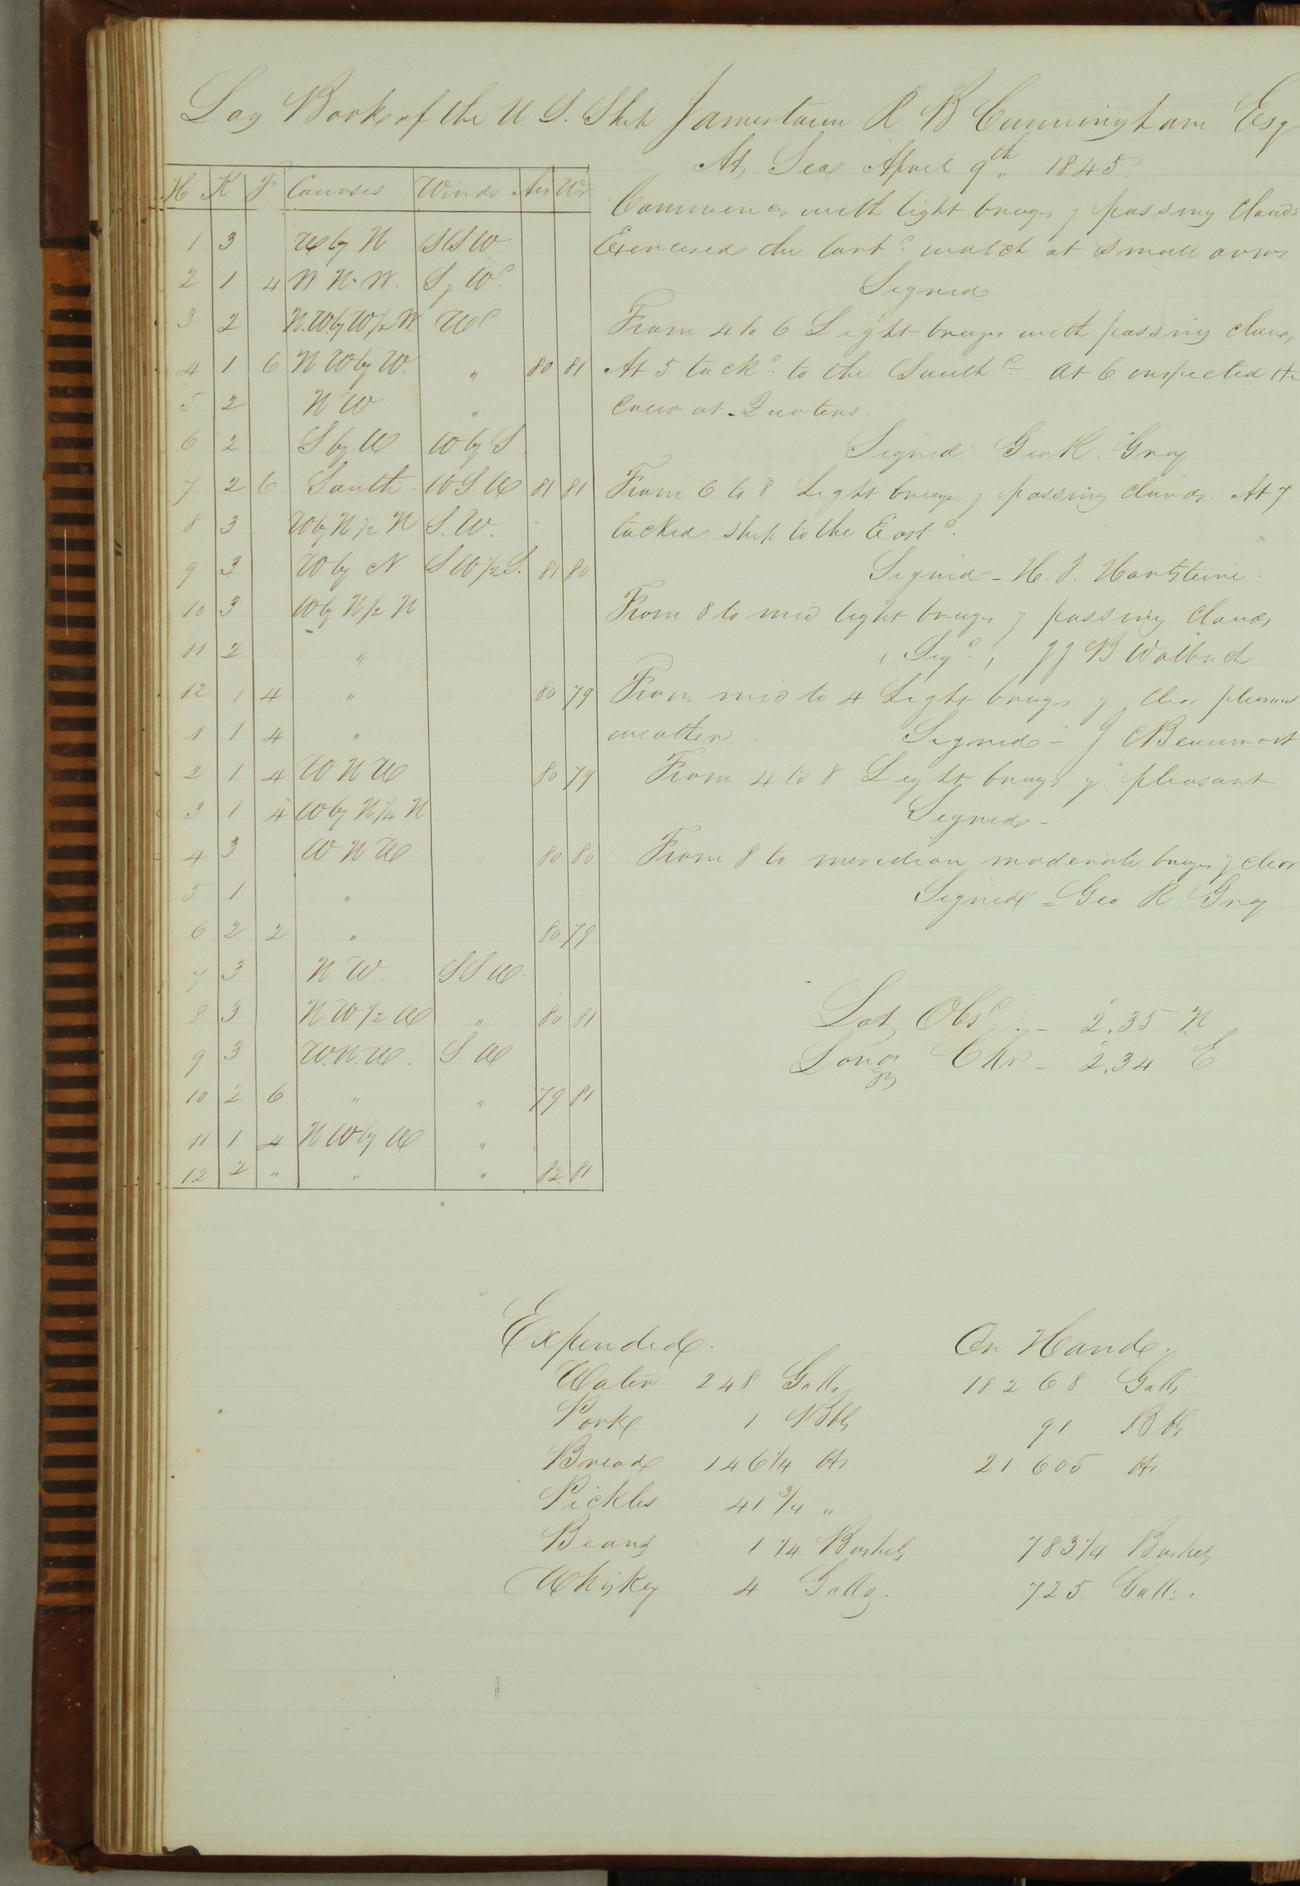 Log Book of the U S. Ship Jamestown R B Cunningham Esq
At Sea April 9th 1845.
H K F Courses Winds Air Wr
1 3 W by N SSW
2 1 4 W N. W. S, Wd
3 2 N.W by W 1/2 W. Wd
4 1 6 N W by W. " 80 81
5 2 N W "
6 2 S by W W by S
7 2 6 South W S. W 81 81
8 3 W by N 1/2 N S. W.
9 3 W by N S W 1/2 S. 81 80
10 3 W by N 1/2 N
11 2 "
12 1 4 " 80 79
1 1 4 "
2 1 4 W N W 80 79
3 1 4 W by N 1/2 N
4 3 W N W 80 80
5 1 "
6 2 2 " 80 79
7 3 N W. S S W.
8 3 N W 1/2 W " 80 81
9 3 W. N. W. S W
10 2 6 " " 79 81
11 1 4 N W by W "
12 2 " " " 82 81
Commences with light breezes & passing Clouds
Exercised the larbd watch at small arms
Signed
From 4 to 6 Light breezes with passing clouds,
At 5 tackd to the Southd. At 6 inspected the
Crew at Quarters.
Signed Geo R. Gray
From 6 to 8 Light breezes & passing clouds. At 7
tacked ship to the Eastd.
Signed - H. J. Hartstene.
From 8 to mid light breezes & passing clouds
Sigd. J J B Walbach
From mid to 4 Light breezes & clear pleasant
weather. Signed - J C Beaumont
From 4 to 8 Light breezes & pleasant
Signed -
From 8 to meridian moderate breezes & clear
Signed - Geo R Gray
Lat Obsd. - 2°.35 N
Long Chr - 2°.34 E
Expended. On Hand.
Water 248 Galls 18268 Galls
Pork 1 Bbls 91 Bbls
Bread 146 1/4 lbs 21605 lbs
Pickles 41 3/4 "
Beans 1 1/4 Bushels 783 1/4 Bushels
Whiskey 4 Galls. 725 Galls.